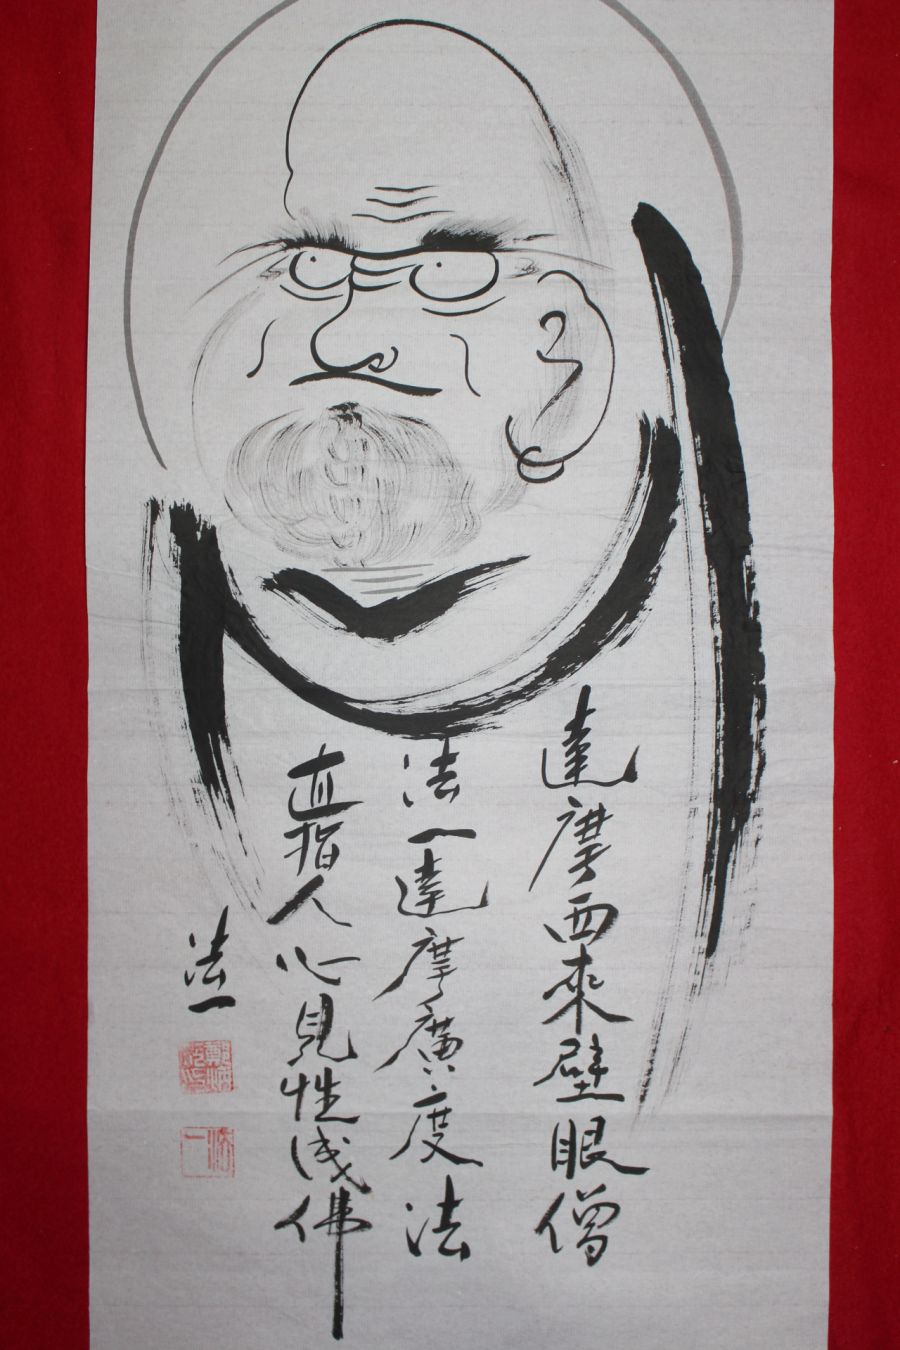 達摩西來壁眼僧
法一達摩廣度法
直指人心見性成佛
法一
法一